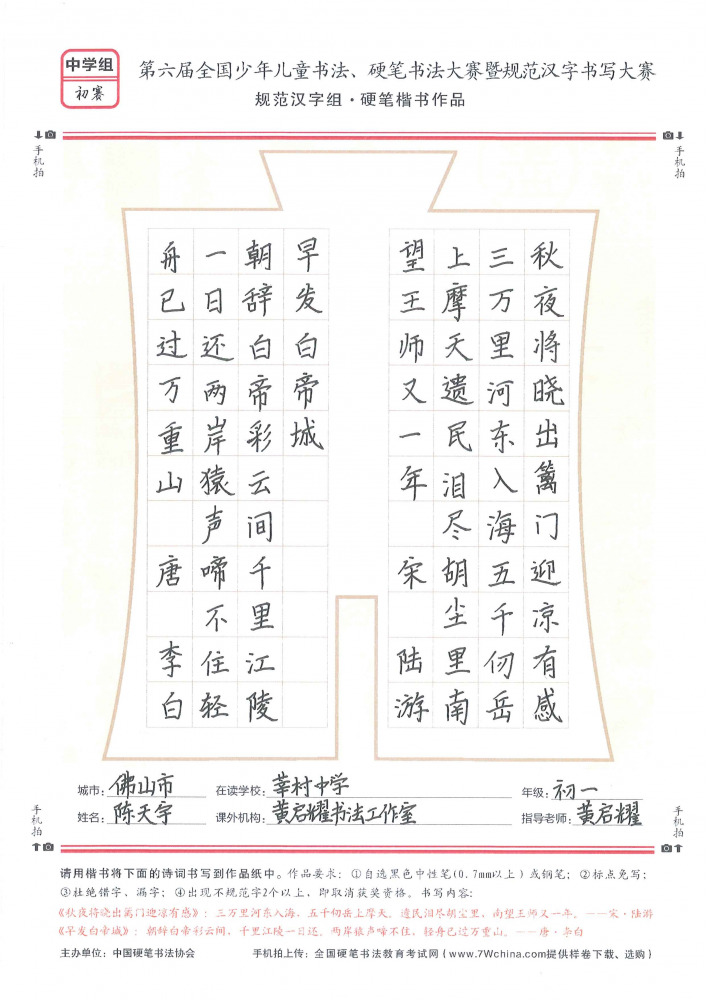 中学组
初赛
第六届全国少年儿童书法、硬笔书法大赛暨规范汉字书写大赛
规范汉字组·硬笔楷书作品
手机拍
手机拍
秋夜将晓出篱门迎凉有感
三万里河东入海五千仞岳
上摩天遗民泪尽胡尘里南
望王师又一年 宋 陆游
早发白帝城
朝辞白帝彩云间千里江陵
一日还两岸猿声啼不住轻
舟已过万重山 唐 李白
城市：佛山市 在读学校：莘村中学 年级：初一
姓名：陈天宇 课外机构：黄启耀书法工作室 指导老师：黄启耀
手机拍
手机拍
请用楷书将下面的诗词书写到作品纸中。作品要求：①自选黑色中性笔(0.7mm以上)或钢笔；②标点免写；
③杜绝错字、漏字；④出现不规范字2个以上，即取消获奖资格。书写内容：
《秋夜将晓出篱门迎凉有感》：三万里河东入海，五千仞岳上摩天。遗民泪尽胡尘里，南望王师又一年。——宋·陆游
《早发白帝城》：朝辞白帝彩云间，千里江陵一日还。两岸猿声啼不住，轻舟已过万重山。——唐·李白
主办单位：中国硬笔书法协会 手机拍上传：全国硬笔书法教育考试网(www.7Wchina.com提供样卷下载、选购)